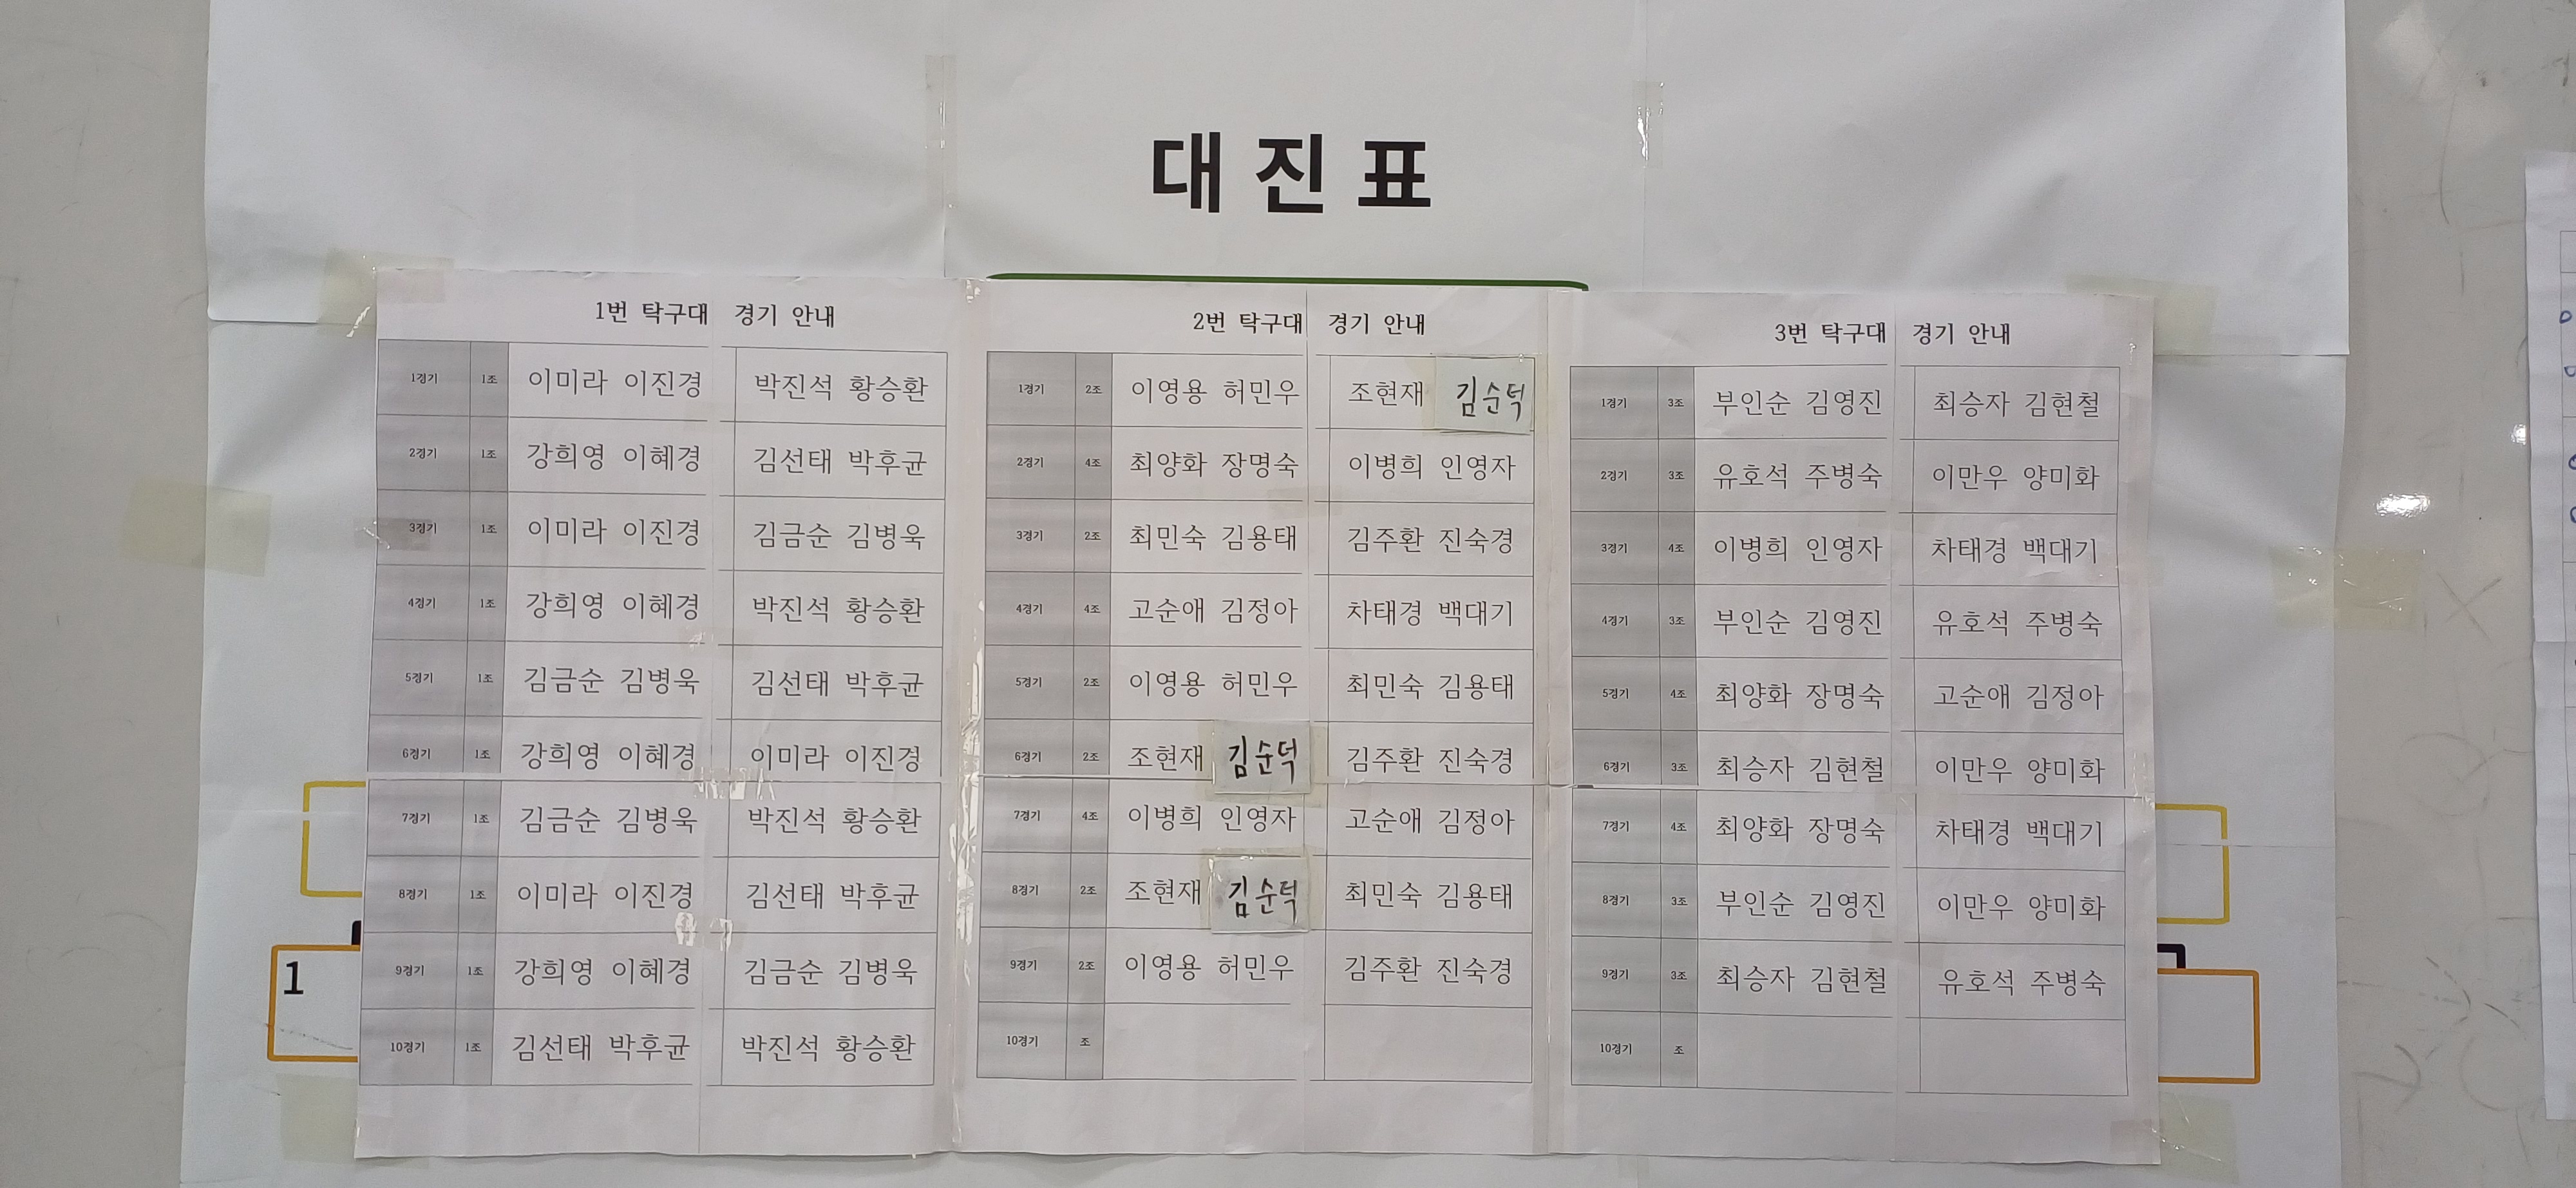 대진표
1번 탁구대 경기 안내
1경기 1조 이미라 이진경 박진석 황승환
2경기 1조 강희영 이혜경 김선태 박후균
3경기 1조 이미라 이진경 김금순 김병욱
4경기 1조 강희영 이혜경 박진석 황승환
5경기 1조 김금순 김병욱 김선태 박후균
6경기 1조 강희영 이혜경 이미라 이진경
7경기 1조 김금순 김병욱 박진석 황승환
8경기 1조 이미라 이진경 김선태 박후균
9경기 1조 강희영 이혜경 김금순 김병욱
10경기 1조 김선태 박후균 박진석 황승환
2번 탁구대 경기 안내
1경기 2조 이영용 허민우 조현재 김순덕
2경기 4조 최양화 장명숙 이병희 인영자
3경기 2조 최민숙 김용태 김주환 진숙경
4경기 4조 고순애 김정아 차태경 백대기
5경기 2조 이영용 허민우 최민숙 김용태
6경기 2조 조현재 김순덕 김주환 진숙경
7경기 4조 이병희 인영자 고순애 김정아
8경기 2조 조현재 김순덕 최민숙 김용태
9경기 2조 이영용 허민우 김주환 진숙경
10경기 조
3번 탁구대 경기 안내
1경기 3조 부인순 김영진 최승자 김현철
2경기 3조 유호석 주병숙 이만우 양미화
3경기 4조 이병희 인영자 차태경 백대기
4경기 3조 부인순 김영진 유호석 주병숙
5경기 4조 최양화 장명숙 고순애 김정아
6경기 3조 최승자 김현철 이만우 양미화
7경기 4조 최양화 장명숙 차태경 백대기
8경기 3조 부인순 김영진 이만우 양미화
9경기 3조 최승자 김현철 유호석 주병숙
10경기 조
1